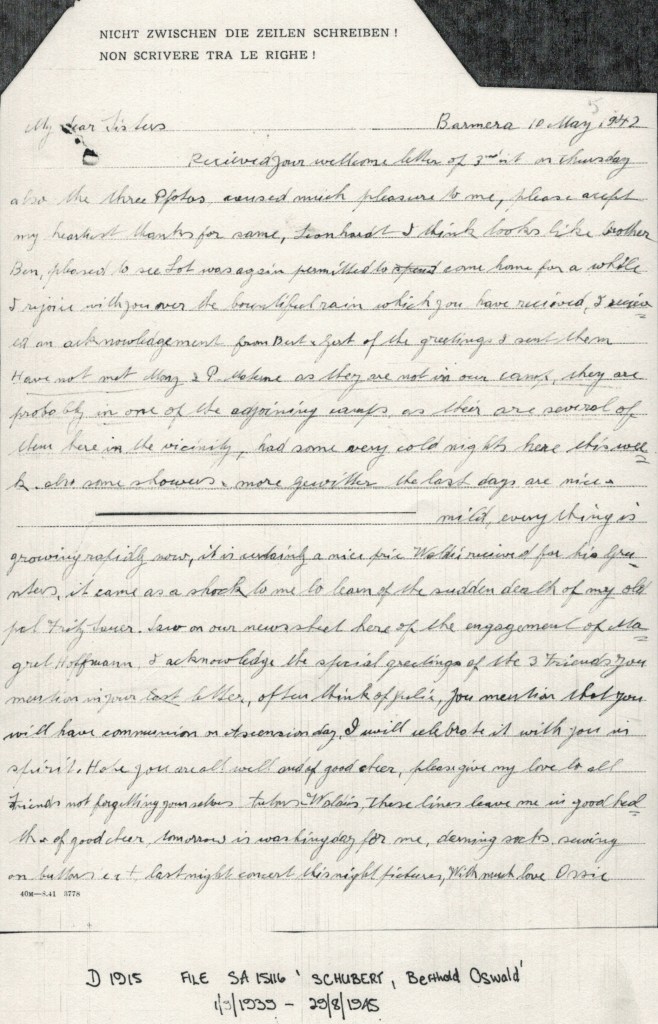 NICHT ZWISCHEN DIE ZEILEN SCHREIBEN!
NON SCRIVERE TRA LE RIGHE!
My dear Sisters Barmera 10 May 1942
Recieved your wellcome letter of 3rd it on Thursday
also the three Pfotos, caused much pleasure to me, please acept
my heartiest thanks for same, Leonhardt I think looks like brother
Ben, pleased to see Lot was again permitted to come home for a while
I rejoice with you over the bountiful rain which you have recieved, I reciev
ed an acknowledgement from Bert & Gert of the greetings I sent them
Have not met & P. as they are not in our camp, they are
probably in one of the adjoining camps, as their are several of
them here in the vicinity, had some very cold nights here this wee
k also some showers & more gewitter the last days are nice &
mild, everything is
growing rapidly now, it is certainly a nice price recieved for his
, it came as a shock to me to learn of the sudden death of my old
pal Fritz . Saw on our newssheet here of the engagement of Ma
gret Hoffmann, I acknowledge the special greetings of the 3 Friends you
mention in your last letter, often think of , you mention that you
will have communion on Ascension day, I will celebrate it with you in
spirit. Hope you are all well and of good cheer, please give my love to all
Friends not forgetting yourselves , These lines leave me in good heal
th & of good cheer, tomorrow is washing day for me, darning socks, sewing
on buttons ect last night concert this night pictures, With much love Ossie
40M—8.41 3778
D 1915 FILE SA 15116 'SCHUBERT, Berthold Oswald'
1/9/1939 – 29/8/1945